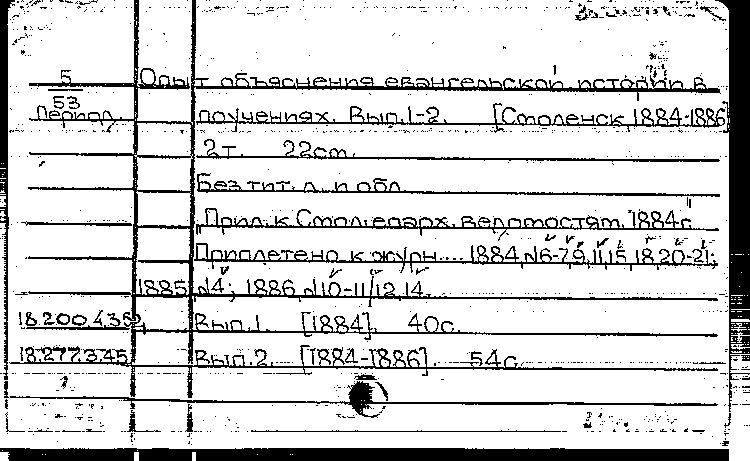 5 Опыт объяснения евангельской истории в
53
Период. поучениях. Вып.1-2. [Смоленск, 1884-1886]
2т. 22см.
Без тит. л. и обл.
"Прил. к Смол. епарх. ведомостям, 1884г."
Приплетено к журн.... 1884, №6-7, 9, 11, 15, 18, 20-21;
1885, №4; 1886, №10-11, 12, 14.
18.200.4.352 Вып.1. [1884]. 40с.
18.277.3.45 Вып.2. [1884-1886]. 54с.